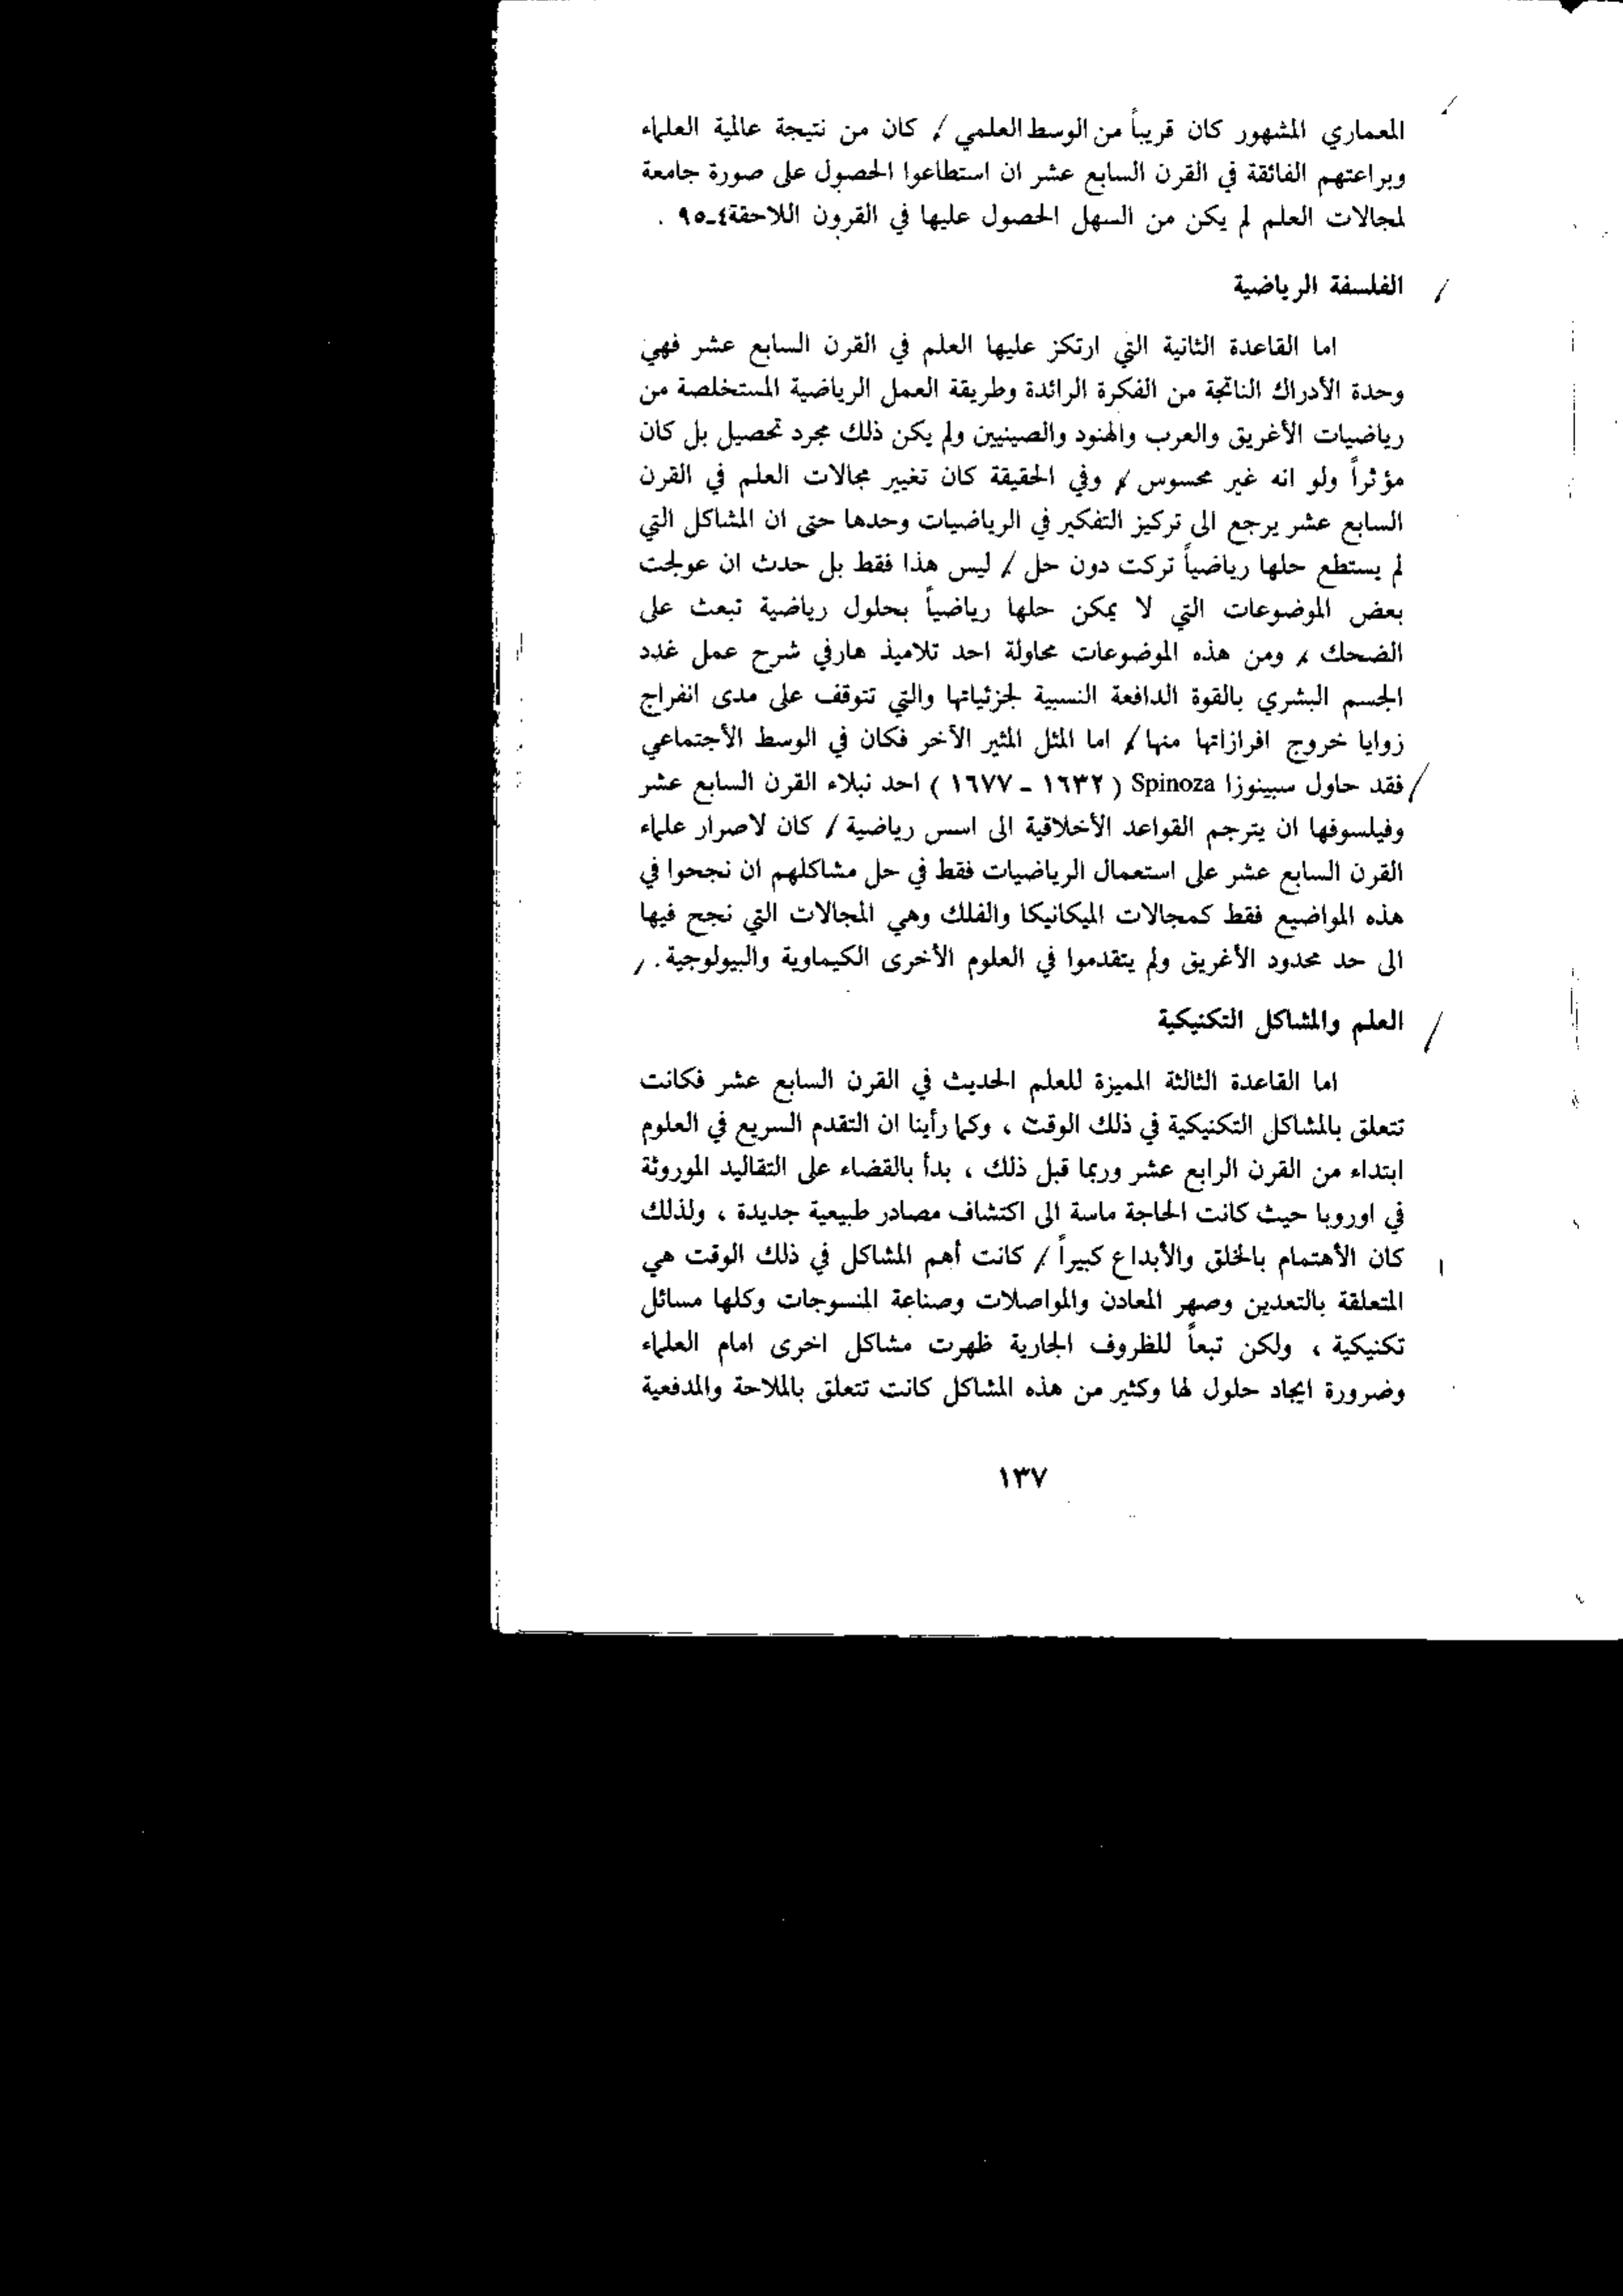 المعماري المشهور كان قريباً من الوسط العلمي / كان من نتيجة عالمية العلماء
وبراعتهم الفائقة في القرن السابع عشر ان استطاعوا الحصول على صورة جامعة
لمجالات العلم لم يكن من السهل الحصول عليها في القرون اللاحقة٤ـ٩٥ .
الفلسفة الرياضية
اما القاعدة الثانية التي ارتكز عليها العلم في القرن السابع عشر فهي
وحدة الأدراك الناتجة من الفكرة الرائدة وطريقة العمل الرياضية المستخلصة من
رياضيات الأغريق والعرب والهنود والصينيين ولم يكن ذلك مجرد تحصيل بل كان
مؤثراً ولو انه غير محسوس / وفي الحقيقة كان تغيير مجالات العلم في القرن
السابع عشر يرجع الى تركيز التفكير في الرياضيات وحدها حتى ان المشاكل التي
لم يستطع حلها رياضياً تركت دون حل / ليس هذا فقط بل حدث ان عولجت
بعض الموضوعات التي لا يمكن حلها رياضياً بحلول رياضية تبعث على
الضحك ، ومن هذه الموضوعات محاولة احد تلاميذ هارفي شرح عمل غدد
الجسم البشري بالقوة الدافعة النسبية لجزئياتها والتي تتوقف على مدى انفراج
زوايا خروج افرازاتها منها / اما المثل المثير الأخر فكان في الوسط الأجتماعي
فقد حاول سبينوزا Spinoza ( ١٦٣٢ - ١٦٧٧ ) احد نبلاء القرن السابع عشر
وفيلسوفها ان يترجم القواعد الأخلاقية الى اسس رياضية / كان لاصرار علماء
القرن السابع عشر على استعمال الرياضيات فقط في حل مشاكلهم ان نجحوا في
هذه المواضيع فقط كمجالات الميكانيكا والفلك وهي المجالات التي نجح فيها
الى حد محدود الأغريق ولم يتقدموا في العلوم الأخرى الكيماوية والبيولوجية .
العلم والمشاكل التكنيكية
اما القاعدة الثالثة المميزة للعلم الحديث في القرن السابع عشر فكانت
تتعلق بالمشاكل التكنيكية في ذلك الوقت ، وكما رأينا ان التقدم السريع في العلوم
ابتداء من القرن الرابع عشر وربما قبل ذلك ، بدأ بالقضاء على التقاليد الموروثة
في اوروبا حيث كانت الحاجة ماسة الى اكتشاف مصادر طبيعية جديدة ، ولذلك
كان الأهتمام بالخلق والأبداع كبيراً / كانت أهم المشاكل في ذلك الوقت هي
المتعلقة بالتعدين وصهر المعادن والمواصلات وصناعة المنسوجات وكلها مسائل
تكنيكية ، ولكن تبعاً للظروف الجارية ظهرت مشاكل اخرى امام العلماء
وضرورة ايجاد حلول لها وكثير من هذه المشاكل كانت تتعلق بالملاحة والمدفعية
١٣٧